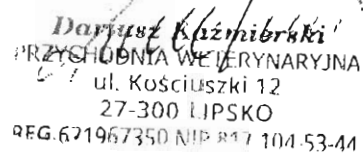 Dariusz Kaźmierski
PRZYCHODNIA WETERYNARYJNA
ul. Kościuszki 12
27-300 LIPSKO
REG.671967350 NIP 811 104-53-44